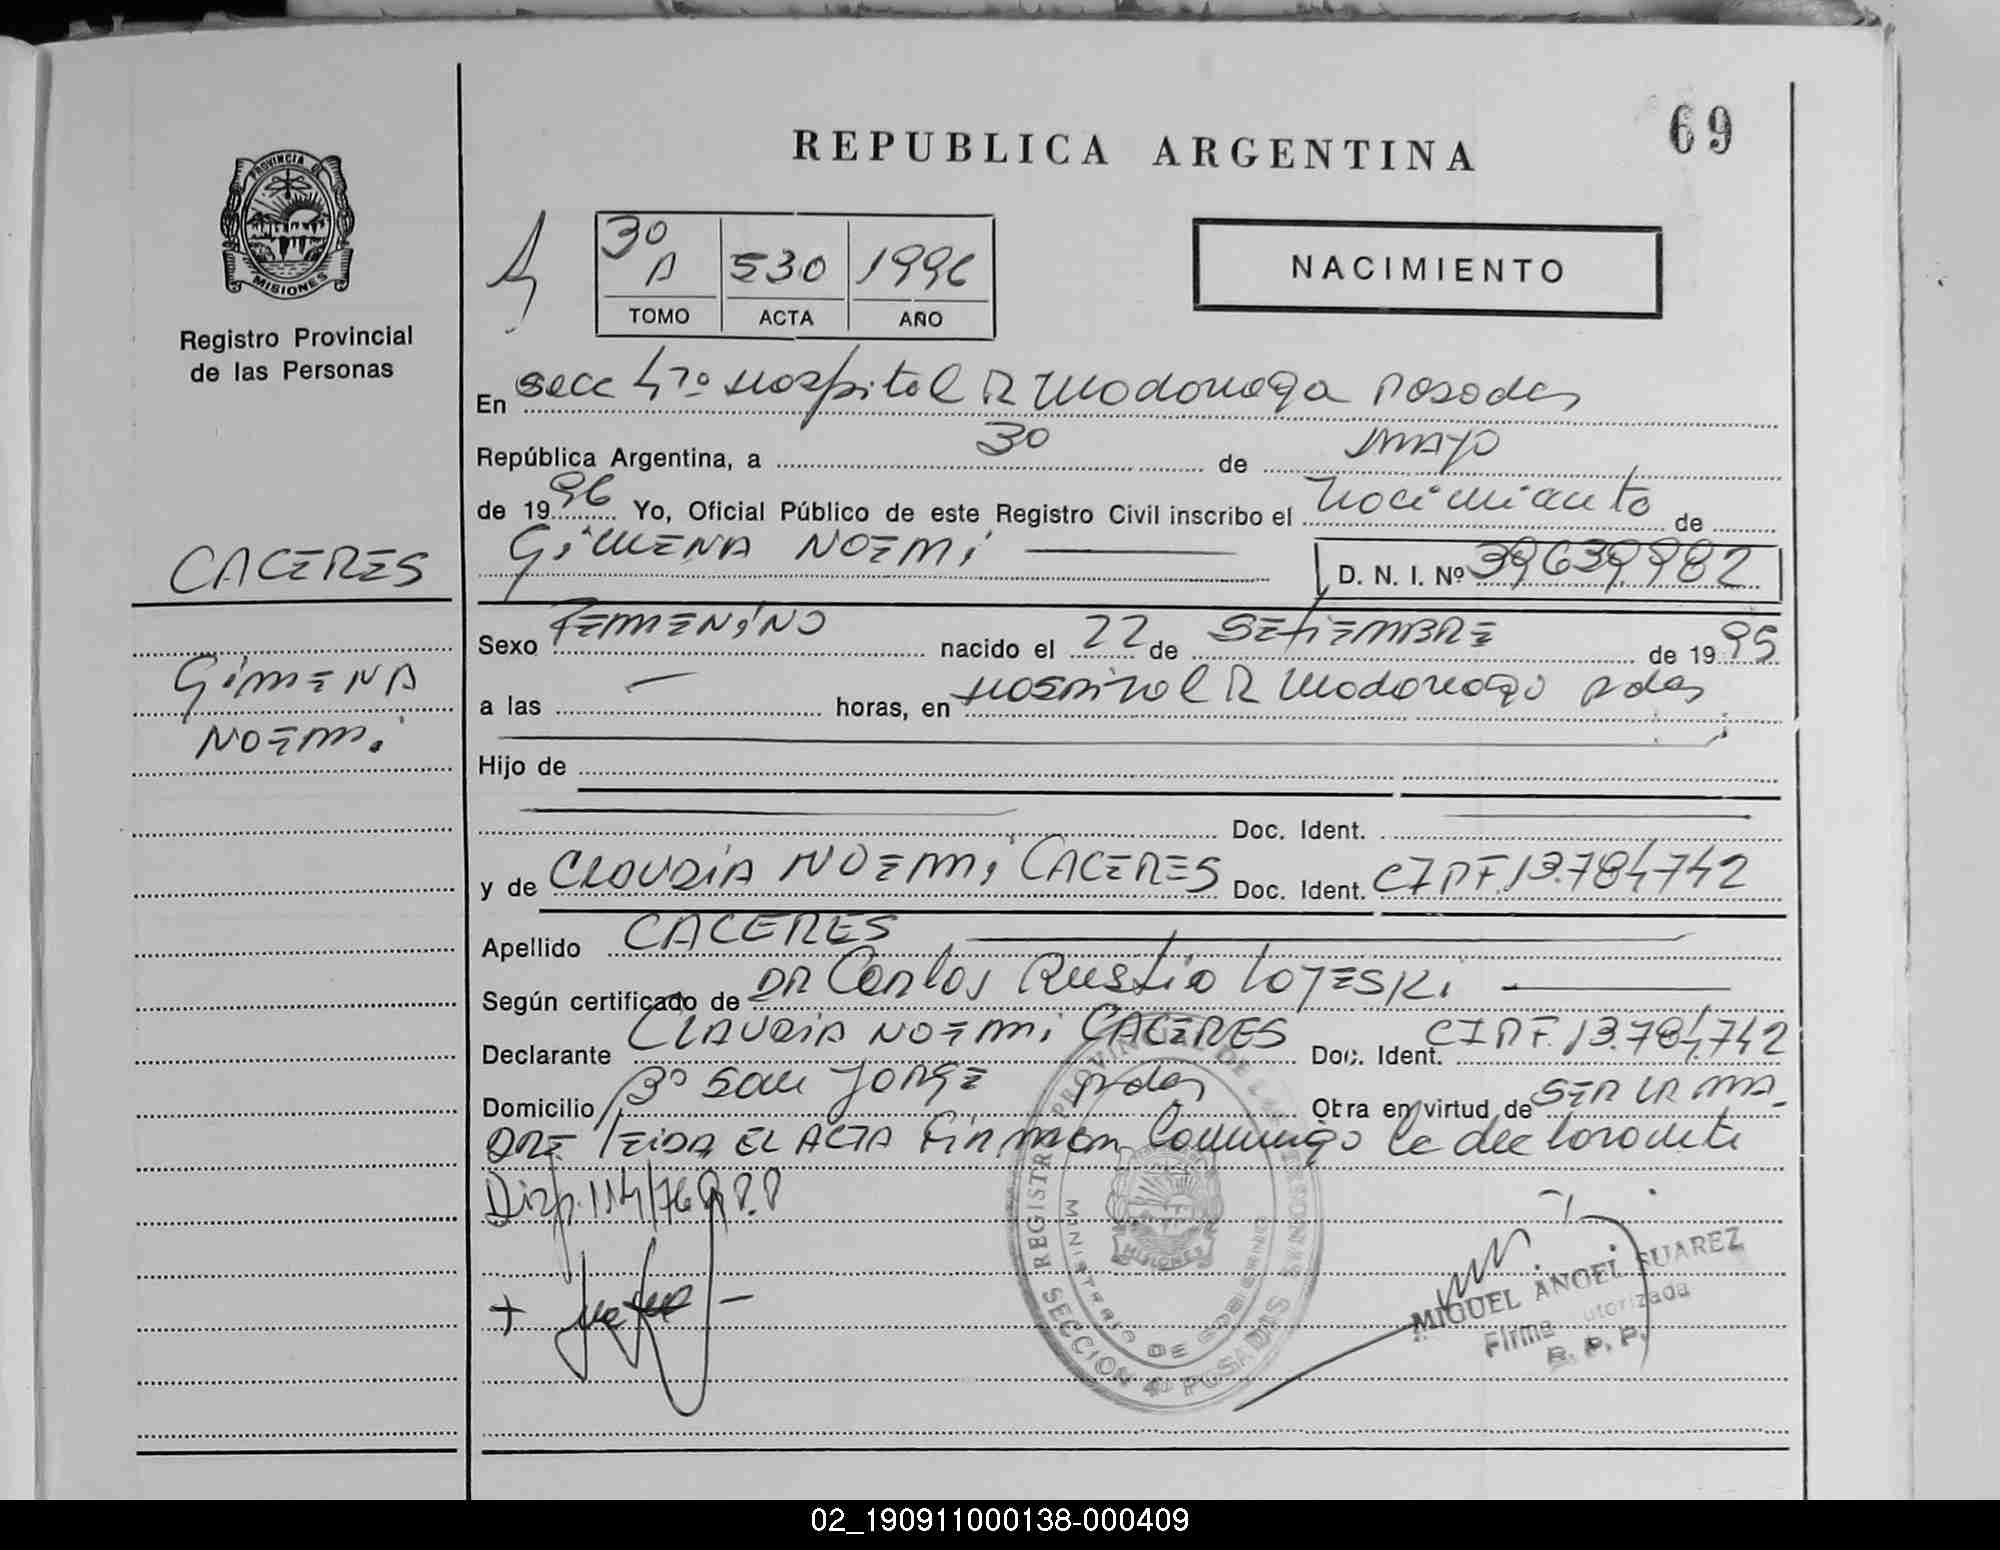 69
REPUBLICA ARGENTINA
PROVINCIA DE
MISIONES
Registro Provincial
de las Personas
3º A 530 1996
TOMO ACTA AÑO
NACIMIENTO
En secc 4ta Hospital R Madariaga Posadas
República Argentina, a 30 de MAYO
de 1996 Yo, Oficial Público de este Registro Civil inscribo el nacimiento de
GIMENA NOEMI D. N. I. Nº 39639982
CACERES
GIMENA
NOEMI
Sexo FEMENINO nacido el 22 de SETIEMBRE de 1995
a las — horas, en Hospital R Madariaga Pdas
Hijo de
Doc. Ident.
y de CLAUDIA NOEMI CACERES Doc. Ident. CIPF.13.784,742
Apellido CACERES
Según certificado de DR Carlos
Declarante CLAUDIA NOEMI CACERES Doc. Ident. CIPF.13.784,742
Domicilio Bº San JORGE Pdas Otra en virtud de SER LA MA-
DRE LEIDA EL ACTA Firman Conmigo la declarante
Disp. 114/76 R.P.P
REGISTRO PROVINCIAL DE LAS PERSONAS
MINISTERIO DE GOBIERNO
MISIONES
SECCION 4ª POSADAS
MIGUEL ANGEL SUAREZ
Firma autorizada
R. P. P.
02_190911000138-000409